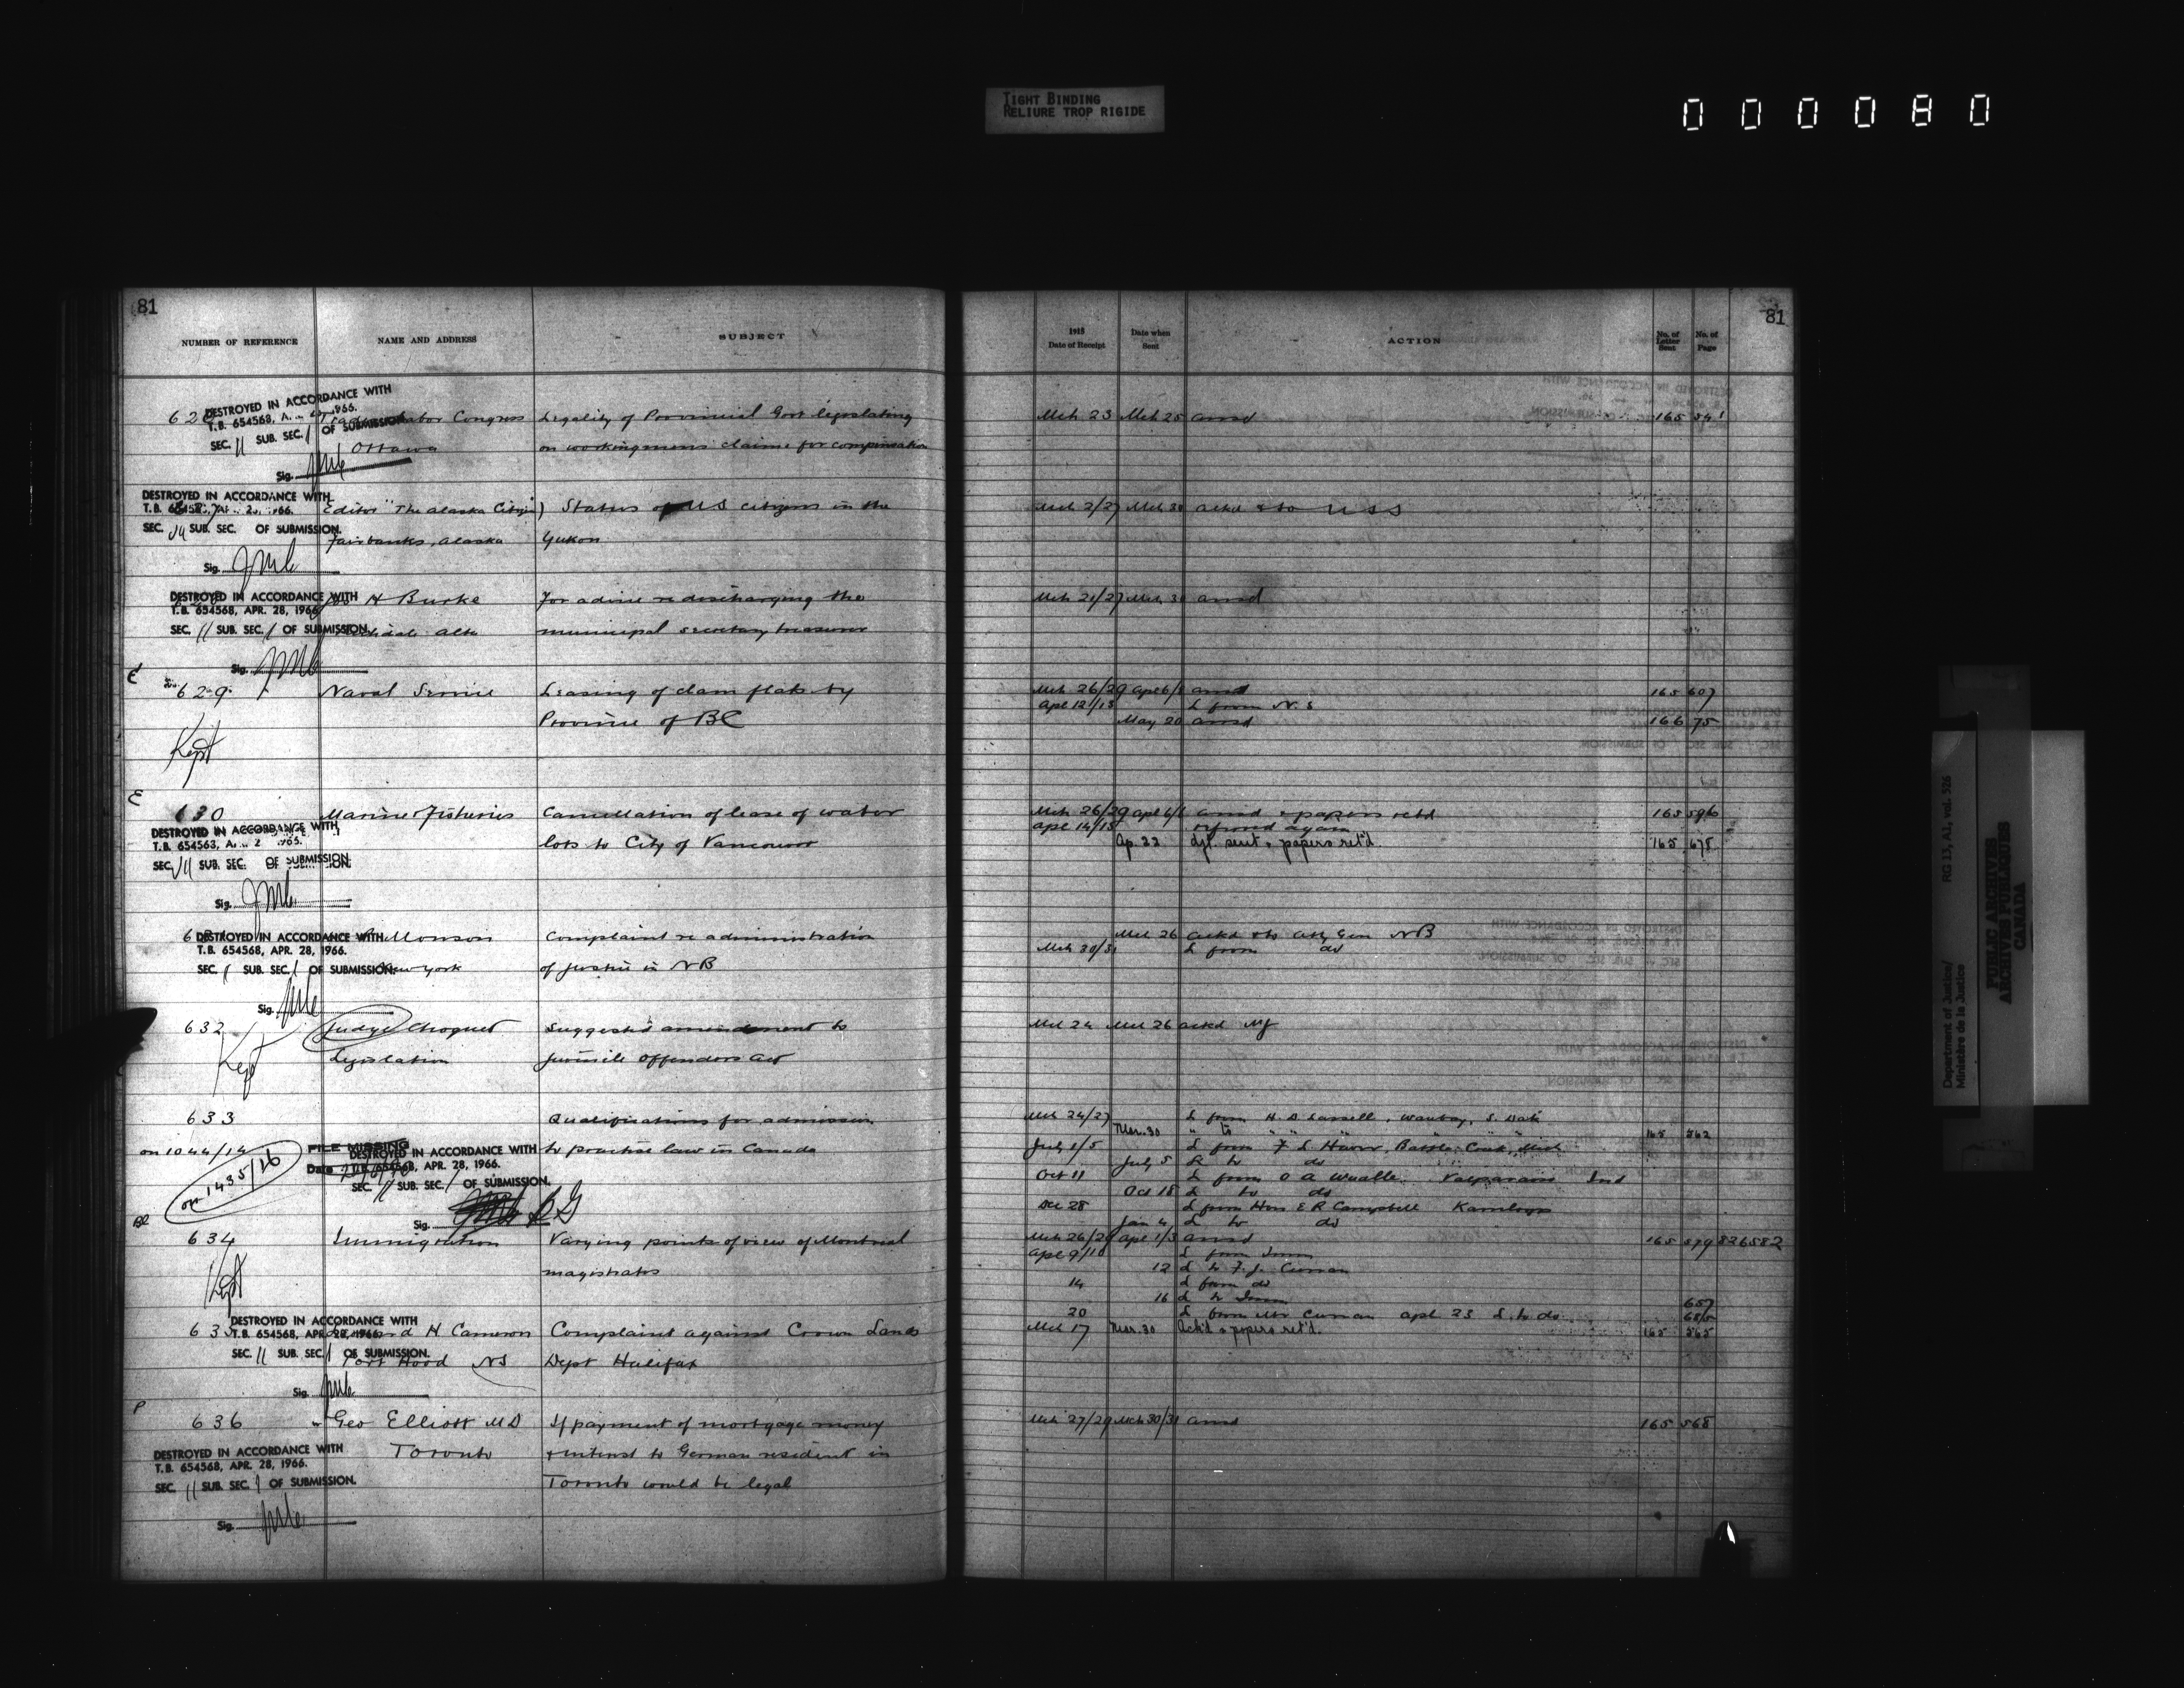 TIGHT BINDING
RELIURE TROP RIGIDE
000080
81
NUMBER OF REFERENCE NAME AND ADDRESS SUBJECT
DESTROYED IN ACCORDANCE WITH
T.B. 654568,
SEC. 11 SUB. SEC. 1 OF SUBMISSION
Labor Congress Legality of Provincial Govt legislating
Ottawa on workingmens claims for compensation
Sig.
DESTROYED IN ACCORDANCE WITH
Editor "The Alaska Citizen" Status of US citizens in the
SEC. SUB. SEC. OF SUBMISSION.
Fairbanks, Alaska Yukon
Sig.
DESTROYED IN ACCORDANCE WITH
H Burke For advice re discharging the
T.B. 654568, APR. 28, 1966
SEC. 11 SUB. SEC. 1 OF SUBMISSION
Alta municipal secretary treasurer
Sig.
E
629 Naval Service Leasing of clam flats by
Province of BC
Kept
E
630 Marine & Fisheries Cancellation of lease of water
DESTROYED IN ACCORDANCE WITH
lots to City of Vancouver
SEC. SUB. SEC. OF SUBMISSION.
Sig.
Monson Complaint re administration
DESTROYED IN ACCORDANCE WITH
T.B. 654568, APR. 28, 1966.
SEC. 11 SUB. SEC. 1 OF SUBMISSION.
New York of justice in NB
Sig.
632 Judge Choquet Suggests amendment to
Kept Legislation Juvenile Offenders Act
633 Qualifications for admission
on 1044/14 FILE MISSING to practise law in Canada
Date
DESTROYED IN ACCORDANCE WITH
T.B. 654568, APR. 28, 1966.
on 1435/16
SEC. 11 SUB. SEC. 1 OF SUBMISSION.
Sig.
634 Immigration Varying points of view of Montreal
Kept magistrates
DESTROYED IN ACCORDANCE WITH
T.B. 654568, APR. 28, 1966
635 H Cameron Complaint against Crown Lands
SEC. 11 SUB. SEC. 1 OF SUBMISSION.
Port Hood NS Dept Halifax
Sig.
P
636 Geo Elliott MD If payment of mortgage money
DESTROYED IN ACCORDANCE WITH
T.B. 654568, APR. 28, 1966.
Toronto & interest to German resident in
SEC. 11 SUB. SEC. 1 OF SUBMISSION.
Toronto would be legal
Sig.
81
1915
Date of Receipt Date when Sent ACTION No. of Letter Sent No. of Page
Mch 23 Mch 25 ansd 165 541
Mch 30 ackd & to USS
ansd
Mch 26/29 Apl 6/8 ansd 165 607
Apl 12/13 L from N.S
May 20 ansd 166 75
Mch 26/29 Apl 6/8 ansd & papers retd 165 596
Apl 14/15 referred again
Ap. 22 dft. sent & papers ret'd. 165 678
Mch 26 ackd & to Atty Gen NB
Mch 30/31 L from do
Mch 24 Mch 26 ackd MJ
Mch 24/27 L from H. D. Lassell, Waubay, S. Dak
Mar. 30 " to " " " 165 562
July 1/5 L from F L Hoover, Battle Creek, Mich
July 5 L to do
Oct 11 L from O A Valparaiso Ind
Oct 18 L to do
Dec 28 L from Hon E R Campbell Kamloops
Jan 4 L to do
Mch 26/29 Apl 1/3 ansd 165 579 826582
Apl 9/10 L from Imm
12 L to F. J. Curran
14 L from do
16 L to Imm 657
20 L from Mr Curran apl 23 L. to do
Mch 17 Mar. 30 Ack'd & papers ret'd. 165 565
Mch 27/29 Mch 30/31 ansd 165 568
Department of Justice/ RG 13, A1, vol. 526
Ministère de la Justice
PUBLIC ARCHIVES
ARCHIVES PUBLIQUES
CANADA